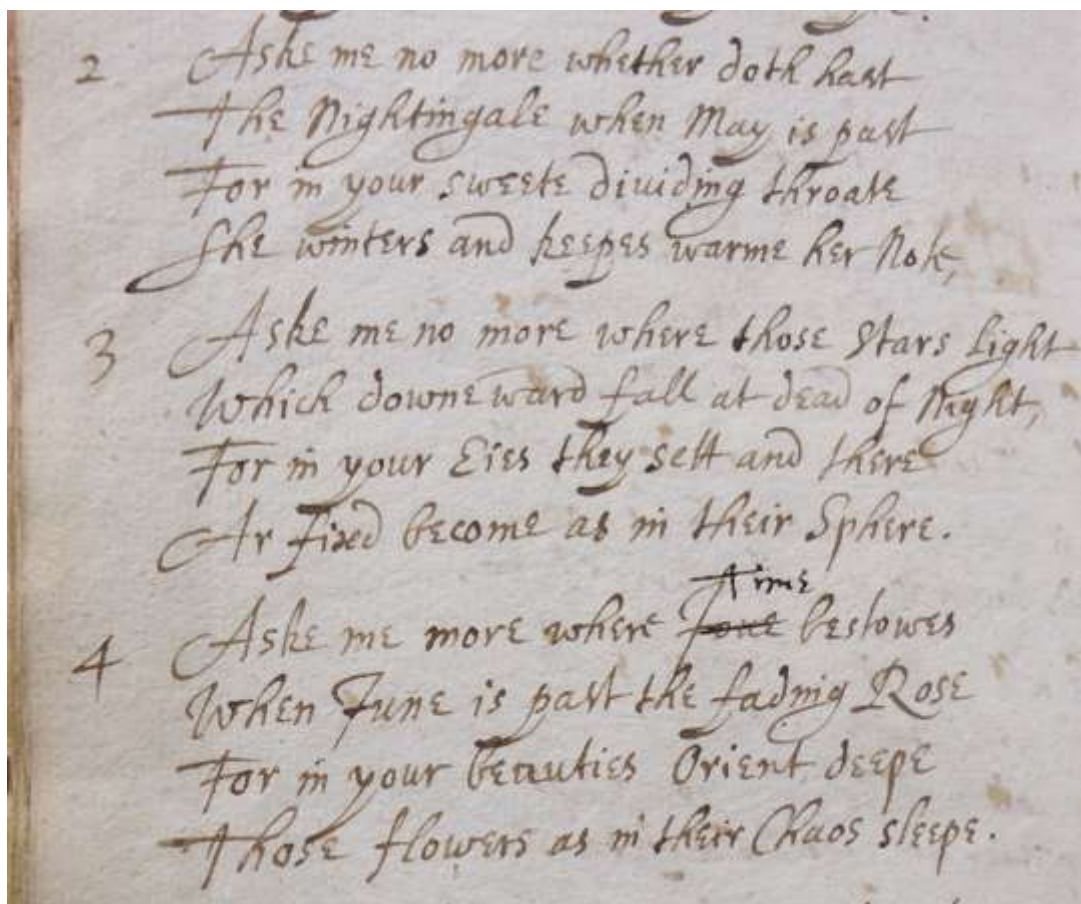 2 Aske me no more whether doth hast
The Nightingale when May is past
For in your sweete diuiding throate
She winters and keepes warme her Note,
3 Aske me no more where those Stars light
Which downeward fall at dead of Night,
For in your Eies they sett and there
Ar fixed become as in their Sphere.
Time
4 Aske me more where Joue bestowes
When June is past the fading Rose
For in your beauties Orient deepe
Those flowers as in their Chaos sleepe.